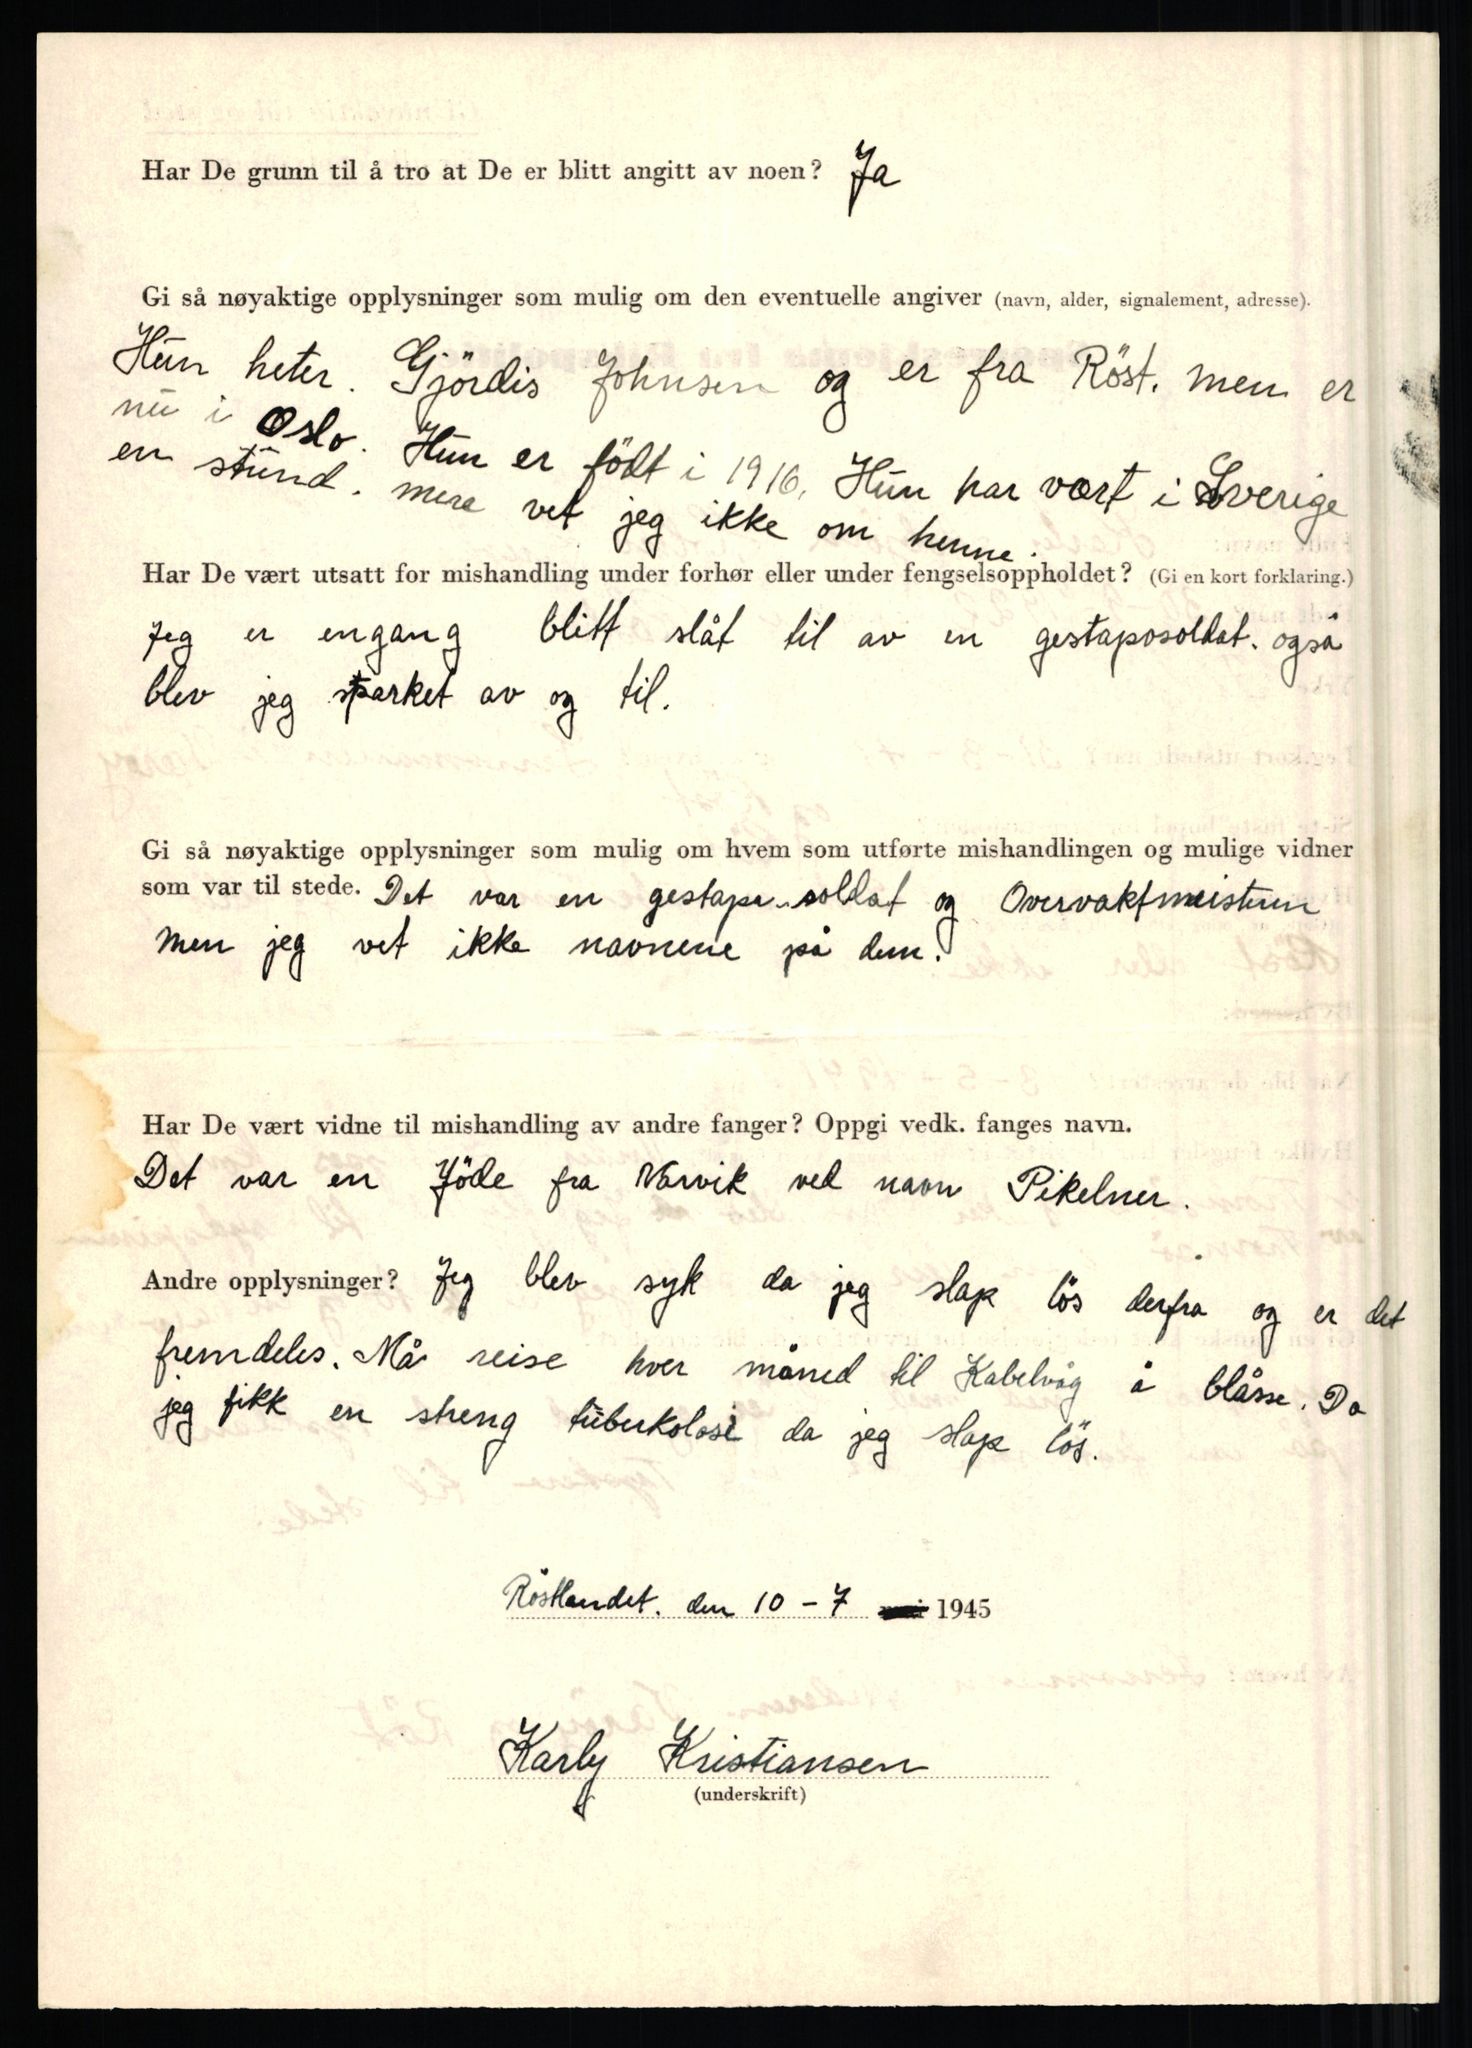 Har De grunn til å tro at De er blitt angitt av noen? Ja
Gi så nøyaktige opplysninger som mulig om den eventuelle angiver (navn, alder, signalement, adresse).
Hun heter. Gjördis Johnsen og er fra Röst. men er
nu i Oslo. Hun er födt i 1916. Hun har vært i Sverige
en stund. mere vet jeg ikke om henne.
Har De vært utsatt for mishandling under forhør eller under fengselsoppholdet? (Gi en kort forklaring.)
Jeg er engang blitt slåt til av en gestaposoldat. også
blev jeg sparket av og til.
Gi så nøyaktige opplysninger som mulig om hvem som utførte mishandlingen og mulige vidner
som var til stede. Det var en gestapo soldat og Overvaktmeisteren
men jeg vet ikke navnene på dem.
Har De vært vidne til mishandling av andre fanger? Oppgi vedk. fanges navn.
Det var en Jöde fra Narvik ved navn Pikelner.
Andre opplysninger? Jeg blev syk da jeg slap lös derfra og er det
fremdeles. Må reise hver måned til Kabelvåg å blåsse. Da
jeg fikk en streng tuberkolose da jeg slap lös.
Röstlandet. den 10-7 1945
Karly Kristiansen
(underskrift)